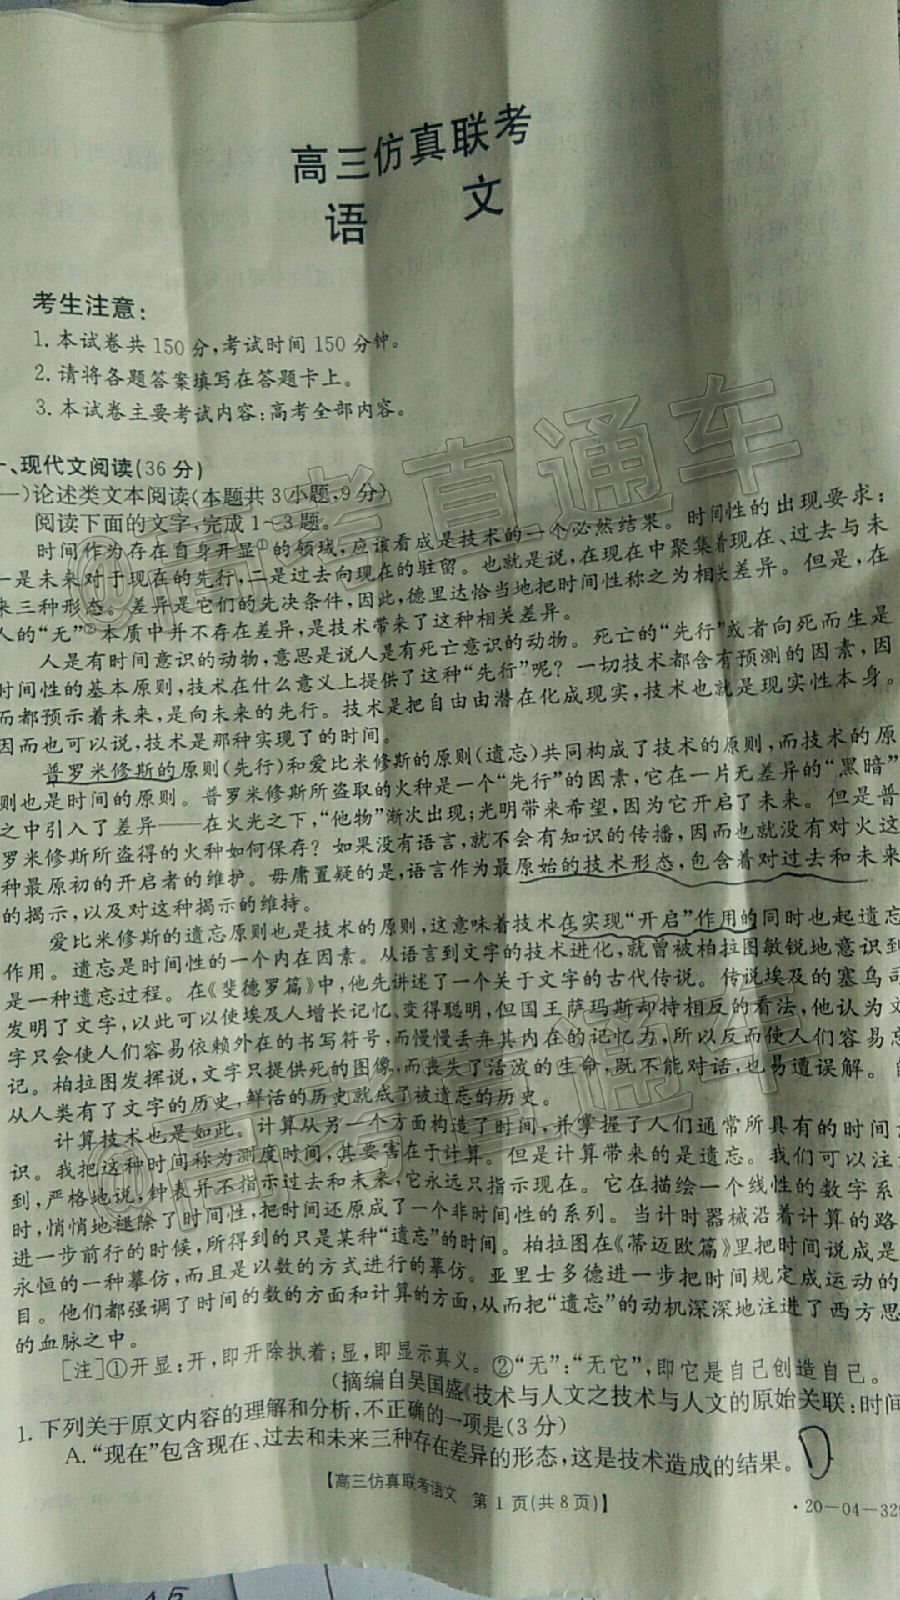 高三仿真联考
语 文
考生注意:
1.本试卷共150分,考试时间150分钟。
2.请将各题答案填写在答题卡上。
3.本试卷主要考试内容:高考全部内容。
一、现代文阅读(36分)
(一)论述类文本阅读(本题共3小题,9分)
阅读下面的文字,完成1~3题。
时间作为存在自身开显①的领域,应该看成是技术的一个必然结果。时间性的出现要求:
一是未来对于现在的先行,二是过去向现在的驻留。也就是说,在现在中聚集着现在、过去与未
来三种形态。差异是它们的先决条件,因此,德里达恰当地把时间性称之为相关差异。但是,在
人的“无”②本质中并不存在差异,是技术带来了这种相关差异。
人是有时间意识的动物,意思是说人是有死亡意识的动物。死亡的“先行”或者向死而生是
时间性的基本原则,技术在什么意义上提供了这种“先行”呢?一切技术都含有预测的因素,因
而都预示着未来,是向未来的先行。技术是把自由由潜在化成现实,技术也就是现实性本身。
因而也可以说,技术是那种实现了的时间。
普罗米修斯的原则(先行)和爱比米修斯的原则(遗忘)共同构成了技术的原则,而技术的原
则也是时间的原则。普罗米修斯所盗取的火种是一个“先行”的因素,它在一片无差异的“黑暗”
之中引入了差异——在火光之下,“他物”渐次出现;光明带来希望,因为它开启了未来。但是普
罗米修斯所盗得的火种如何保存?如果没有语言,就不会有知识的传播,因而也就没有对火这
种最原初的开启者的维护。毋庸置疑的是,语言作为最原始的技术形态,包含着对过去和未来
的揭示,以及对这种揭示的维持。
爱比米修斯的遗忘原则也是技术的原则,这意味着技术在实现“开启”作用的同时也起遗忘
作用。遗忘是时间性的一个内在因素。从语言到文字的技术进化,就曾被柏拉图敏锐地意识到
是一种遗忘过程。在《斐德罗篇》中,他先讲述了一个关于文字的古代传说。传说埃及的塞乌司
发明了文字,以此可以使埃及人增长记忆、变得聪明,但国王萨玛斯却持相反的看法,他认为文
字只会使人们容易依赖外在的书写符号,而慢慢丢弃其内在的记忆力,所以反而使人们容易忘
记。柏拉图发挥说,文字只提供死的图像,而丧失了活泼的生命,既不能对话,也易遭误解。
从人类有了文字的历史,鲜活的历史就成了被遗忘的历史。
计算技术也是如此。计算从另一个方面构造了时间,并掌握了人们通常所具有的时间
识。我把这种时间称为测度时间,其要害在于计算。但是计算带来的是遗忘。我们可以注
到,严格地说,钟表并不指示过去和未来,它永远只指示现在。它在描绘一个线性的数字系
时,悄悄地褪除了时间性,把时间还原成了一个非时间性的系列。当计时器械沿着计算的路
进一步前行的时候,所得到的只是某种“遗忘”的时间。柏拉图在《蒂迈欧篇》里把时间说成是
永恒的一种摹仿,而且是以数的方式进行的摹仿。亚里士多德进一步把时间规定成运动的
目。他们都强调了时间的数的方面和计算的方面,从而把“遗忘”的动机深深地注进了西方思
的血脉之中。
[注]①开显:开,即开除执着;显,即显示真义。②“无”:“无它”,即它是自己创造自己。
(摘编自吴国盛《技术与人文之技术与人文的原始关联:时间
1.下列关于原文内容的理解和分析,不正确的一项是(3分)
A.“现在”包含现在、过去和未来三种存在差异的形态,这是技术造成的结果。
D
【高三仿真联考语文 第1页(共8页)】
·20-04-32
@高考直通车
@高考直通车